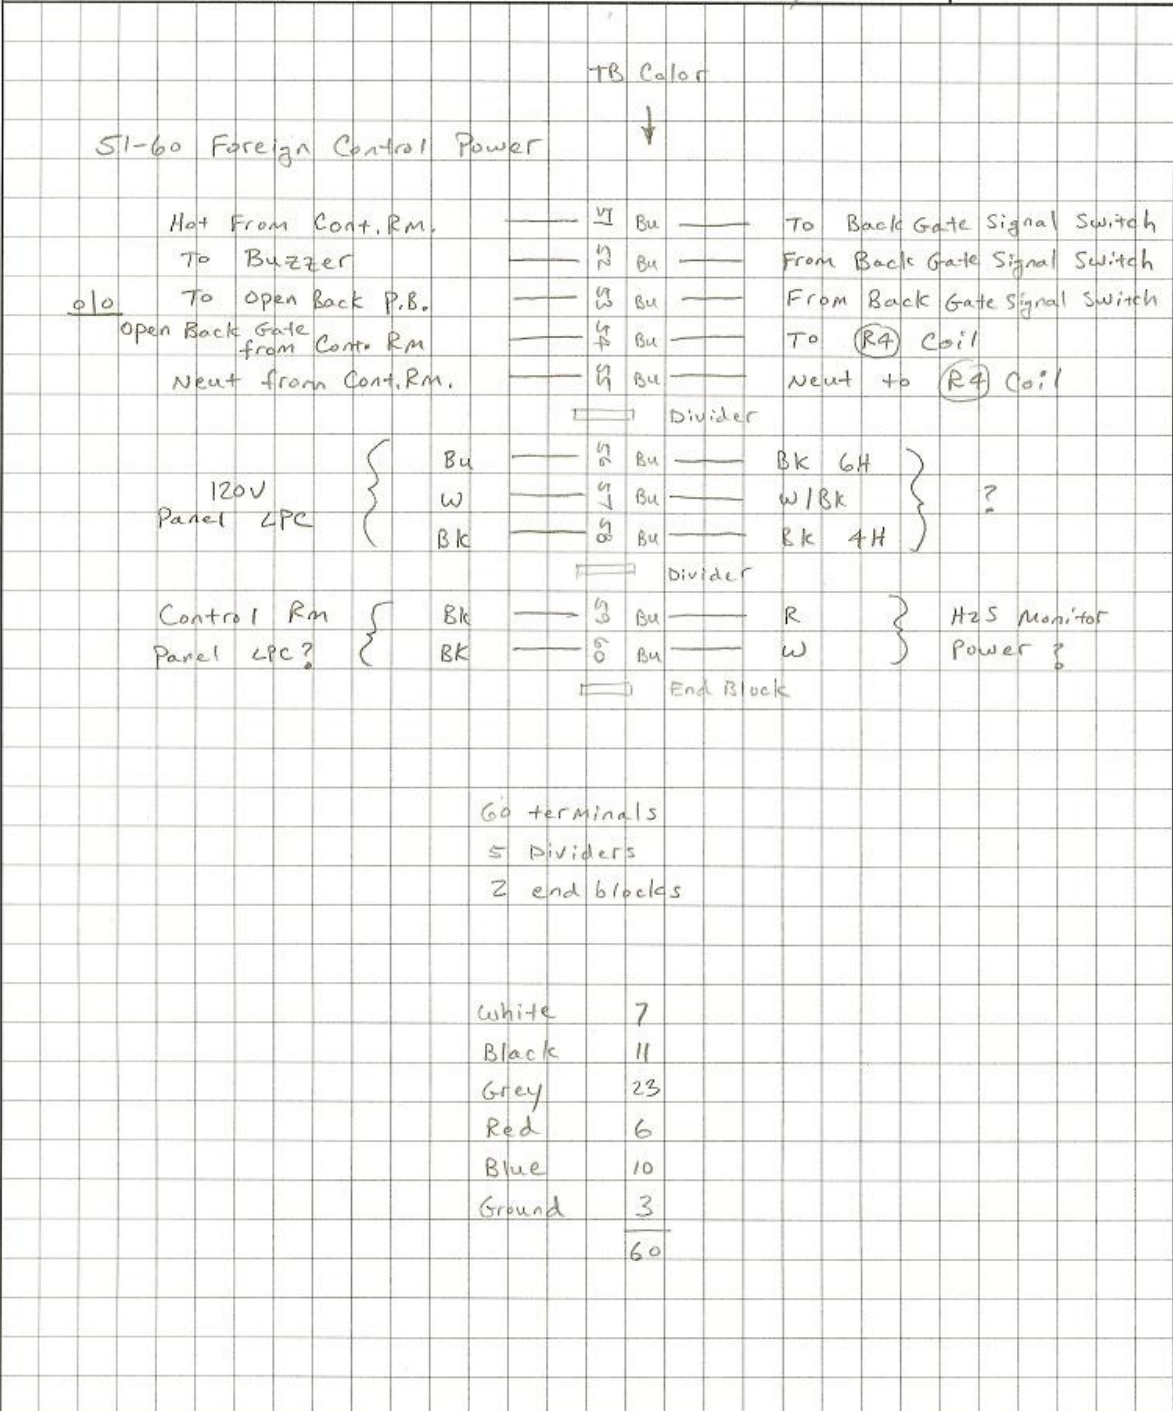 TB Color
51-60 Foreign Control Power
Hot From Cont. Rm. 51 Bu To Back Gate Signal Switch
To Buzzer 52 Bu From Back Gate Signal Switch
o|o To Open Back P.B. 53 Bu From Back Gate Signal Switch
Open Back Gate
from Cont. Rm 54 Bu To R4 Coil
Neut from Cont. Rm. 55 Bu Neut to R4 Coil
Divider
Bu 56 Bu BK 6H
120V
Panel LPC
W 57 Bu W/BK ?
BK 58 Bu BK 4H
Divider
Control Rm Bk 59 Bu R H2S Monitor
Panel LPC? BK 60 Bu W Power ?
End Block
60 terminals
5 Dividers
2 end blocks
White 7
Black 11
Grey 23
Red 6
Blue 10
Ground 3
60